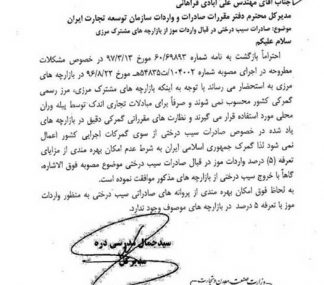 جناب آقای مهندس علی آبادی فراهانی
مدیرکل محترم دفتر مقررات صادرات و واردات سازمان توسعه تجارت ایران
موضوع: صادرات سیب درختی در قبال واردات موز از بازارچه های مشترک مرزی
سلام علیکم
احتراماً بازگشت به نامه شماره ۶۰/۶۹۸۹۳ مورخ ۹۷/۳/۱۳ در خصوص مشکلات
مطروحه در اجرای مصوبه شماره ۱۰۴۰۰۲/ت۵۴۸۳۵هـ مورخ ۹۶/۸/۲۲ در بازارچه های
مرزی به استحضار می رساند با توجه به اینکه بازارچه های مشترک مرزی، مرز رسمی
گمرکی کشور محسوب نمی شوند و صرفاً برای مبادلات تجاری اندک توسط پیله وران
محلی مورد استفاده قرار می گیرند و نظارت های مقرراتی گمرکی دقیق در بازارچه های
یاد شده در خصوص صادرات سیب درختی از سوی گمرکات اجرایی کشور اعمال
نمی شود لذا گمرک جمهوری اسلامی ایران به شرط عدم امکان بهره مندی از مزایای
تعرفه (۵) درصد واردات موز در قبال صادرات سیب درختی موضوع مصوبه فوق الاشاره،
گاهاً با خروج سیب درختی از بازارچه های مذکور موافقت نموده است.
به لحاظ فوق امکان بهره مندی از پروانه های صادراتی سیب درختی به منظور واردات
موز با تعرفه ۵ درصد در بازارچه های موصوف وجود ندارد.
سیدجمال مدرسی دره
مدیرکل
وزارت صنعت، معدن و تجارت